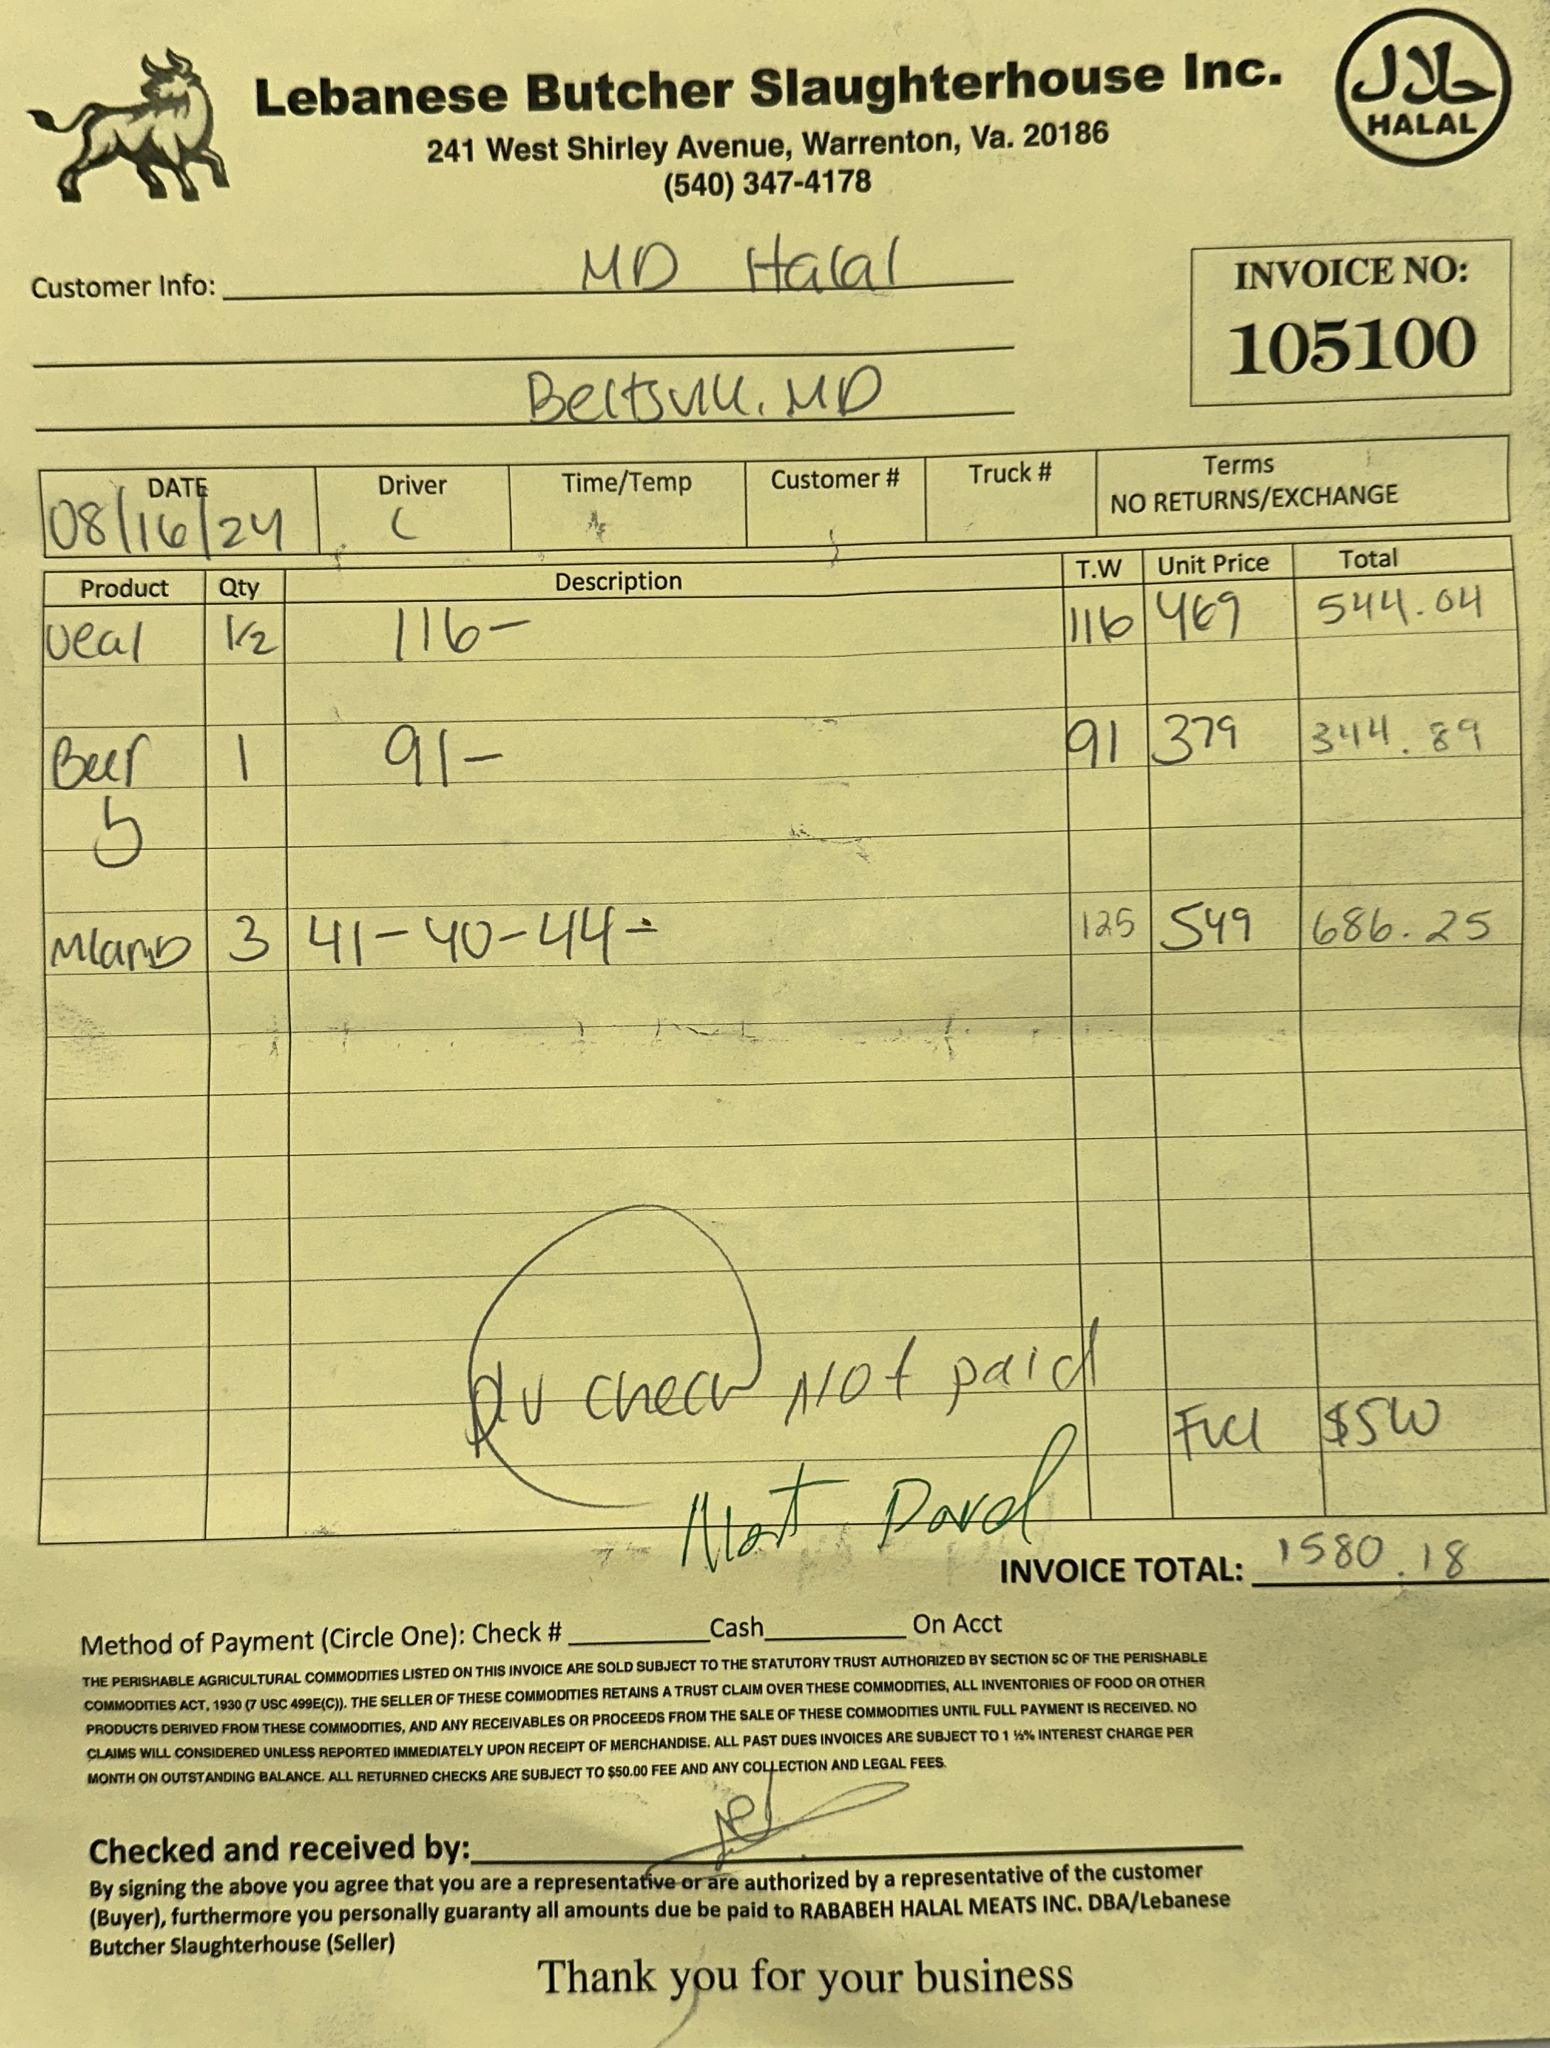 Lebanese Butcher Slaughterhouse Inc.
حلال
HALAL
241 West Shirley Avenue, Warrenton, Va. 20186
(540) 347-4178
Customer Info: MD Halal
INVOICE NO:
105100
MD
DATE Driver Time/Temp Customer # Truck # Terms
NO RETURNS/EXCHANGE
08/16/24 C
Product Qty Description T.W Unit Price Total
Veal 1/2 116- 116 469 544.04
1 91- 91 379 344.89
3 41-40-44- 125 549 686.25
check Not paid
Fuel $5
INVOICE TOTAL: 1580.18
Method of Payment (Circle One): Check # Cash On Acct
THE PERISHABLE AGRICULTURAL COMMODITIES LISTED ON THIS INVOICE ARE SOLD SUBJECT TO THE STATUTORY TRUST AUTHORIZED BY SECTION 5C OF THE PERISHABLE
COMMODITIES ACT, 1930 (7 USC 499E(C)). THE SELLER OF THESE COMMODITIES RETAINS A TRUST CLAIM OVER THESE COMMODITIES, ALL INVENTORIES OF FOOD OR OTHER
PRODUCTS DERIVED FROM THESE COMMODITIES, AND ANY RECEIVABLES OR PROCEEDS FROM THE SALE OF THESE COMMODITIES UNTIL FULL PAYMENT IS RECEIVED. NO
CLAIMS WILL CONSIDERED UNLESS REPORTED IMMEDIATELY UPON RECEIPT OF MERCHANDISE. ALL PAST DUES INVOICES ARE SUBJECT TO 1 ½% INTEREST CHARGE PER
MONTH ON OUTSTANDING BALANCE. ALL RETURNED CHECKS ARE SUBJECT TO $50.00 FEE AND ANY COLLECTION AND LEGAL FEES.
Checked and received by:
By signing the above you agree that you are a representative or are authorized by a representative of the customer
(Buyer), furthermore you personally guaranty all amounts due be paid to RABABEH HALAL MEATS INC. DBA/Lebanese
Butcher Slaughterhouse (Seller)
Thank you for your business